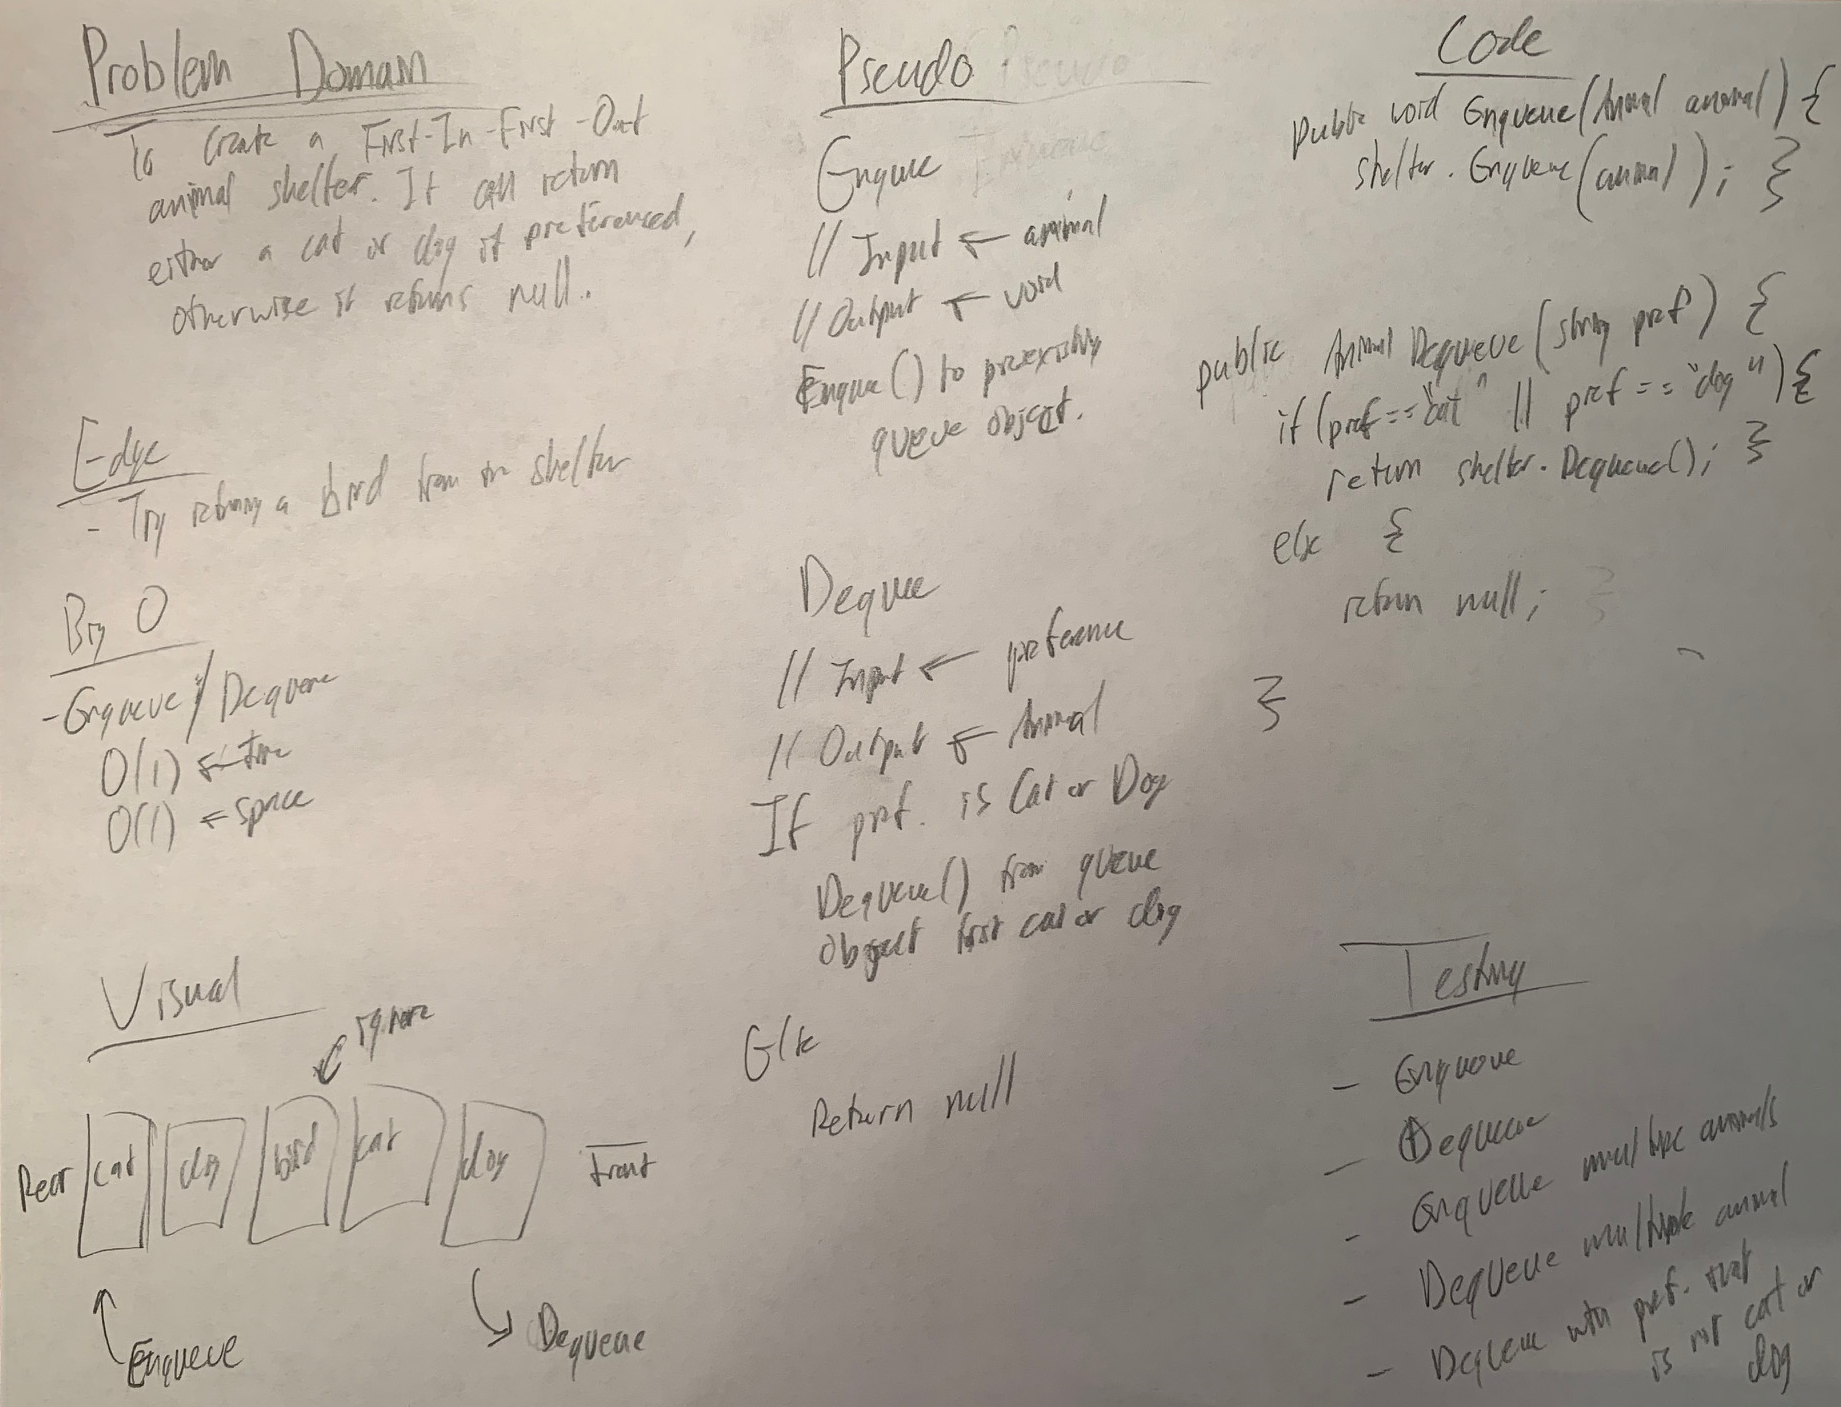 Problem Domain
To Create a First-In-First-Out
animal shelter. It can return
either a cat or dog if preferenced,
otherwise it returns null.
Edge
- Try returning a bird from the shelter
Big O
- Enqueue / Dequeue
O(1) ← Time
O(1) ← space
Visual
ignore
Rear cat dog bird cat dog Front
Enqueue
Dequeue
Pseudo Pseudo
Enque Enqueue
// Input ← animal
// Output ← void
Enque() to preexisting
queue object.
Deque
// Input ← preference
// Output ← Animal
If pref. is Cat or Dog
Dequeue() from queue
Object first cat or dog
Else
Return null
Code
public void Enqueue(Animal animal) {
shelter.Enqueue(animal); }
public Animal Dequeue(string pref) {
if (pref == "cat" || pref == "dog") {
return shelter.Dequeue(); }
else {
return null; }
}
Testing
- Enqueue
- Dequeue
- Enqueue multiple animals
- Dequeue multiple animal
- Dequeue with pref. that
is not cat or
dog